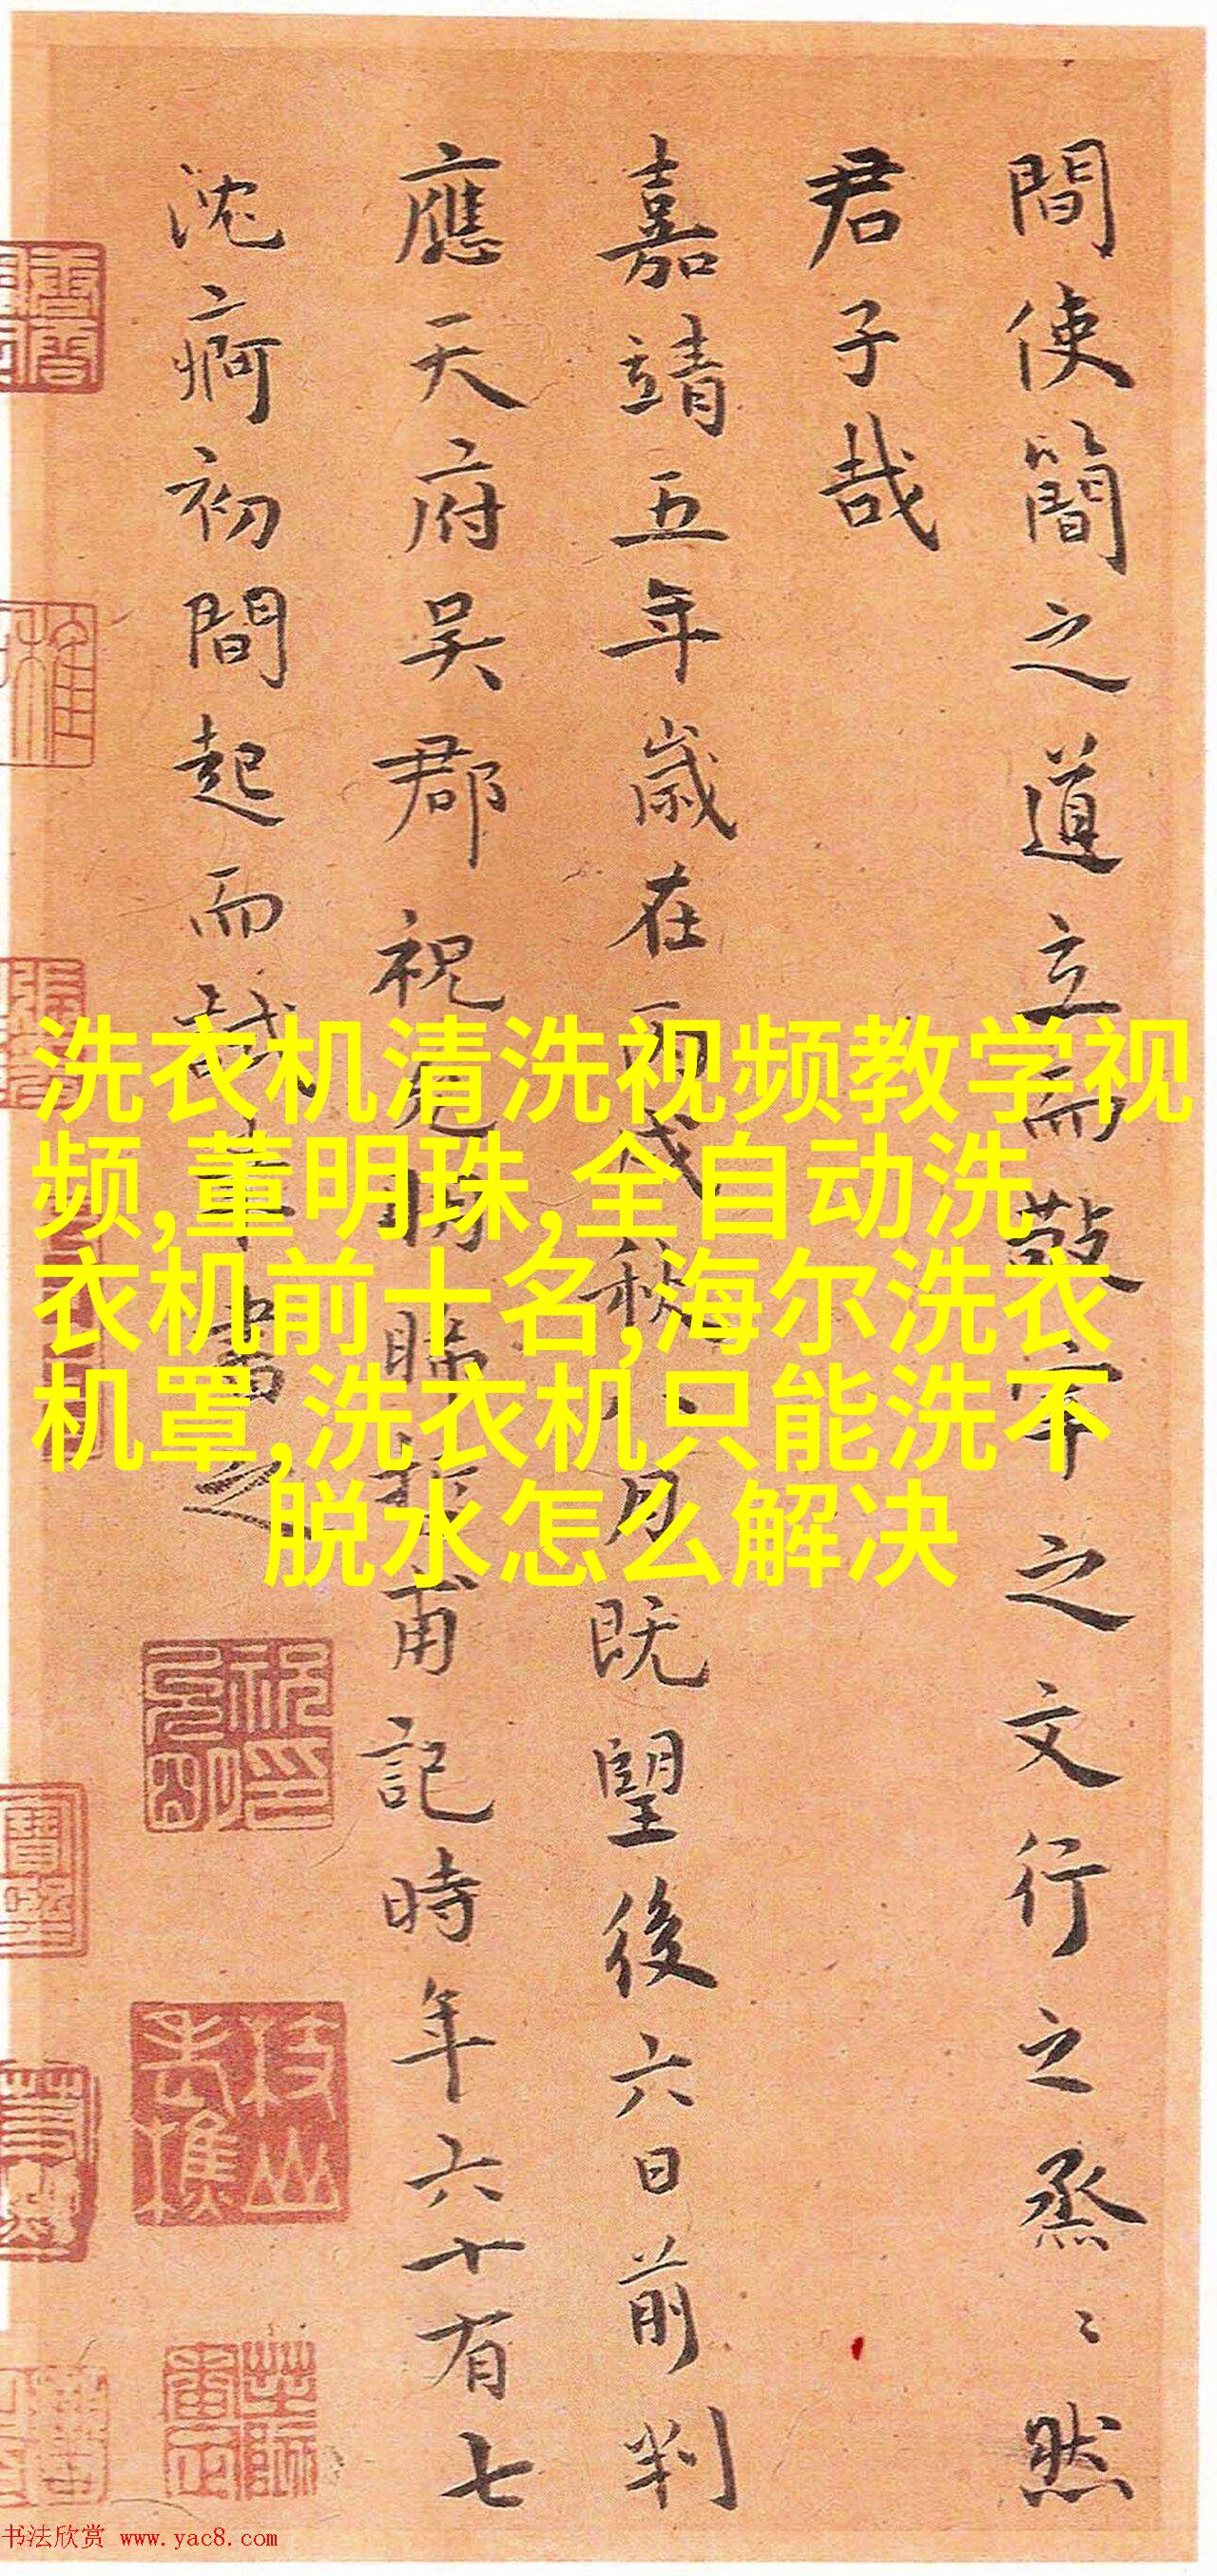 間使簡之道立而敬牢之文行之烝〻然
君子哉
嘉靖五年歲在丙戌秋八月既望後六日前判
應天府吳郡祝允明晞哲甫記時年六十有七
沈痾初間起而試筆書之
洗衣机清洗视频教学视
频,董明珠,全自动洗
衣机前十名,海尔洗衣
机罩,洗衣机只能洗不
脱水怎么解决
书法欣赏 www.yac8.com